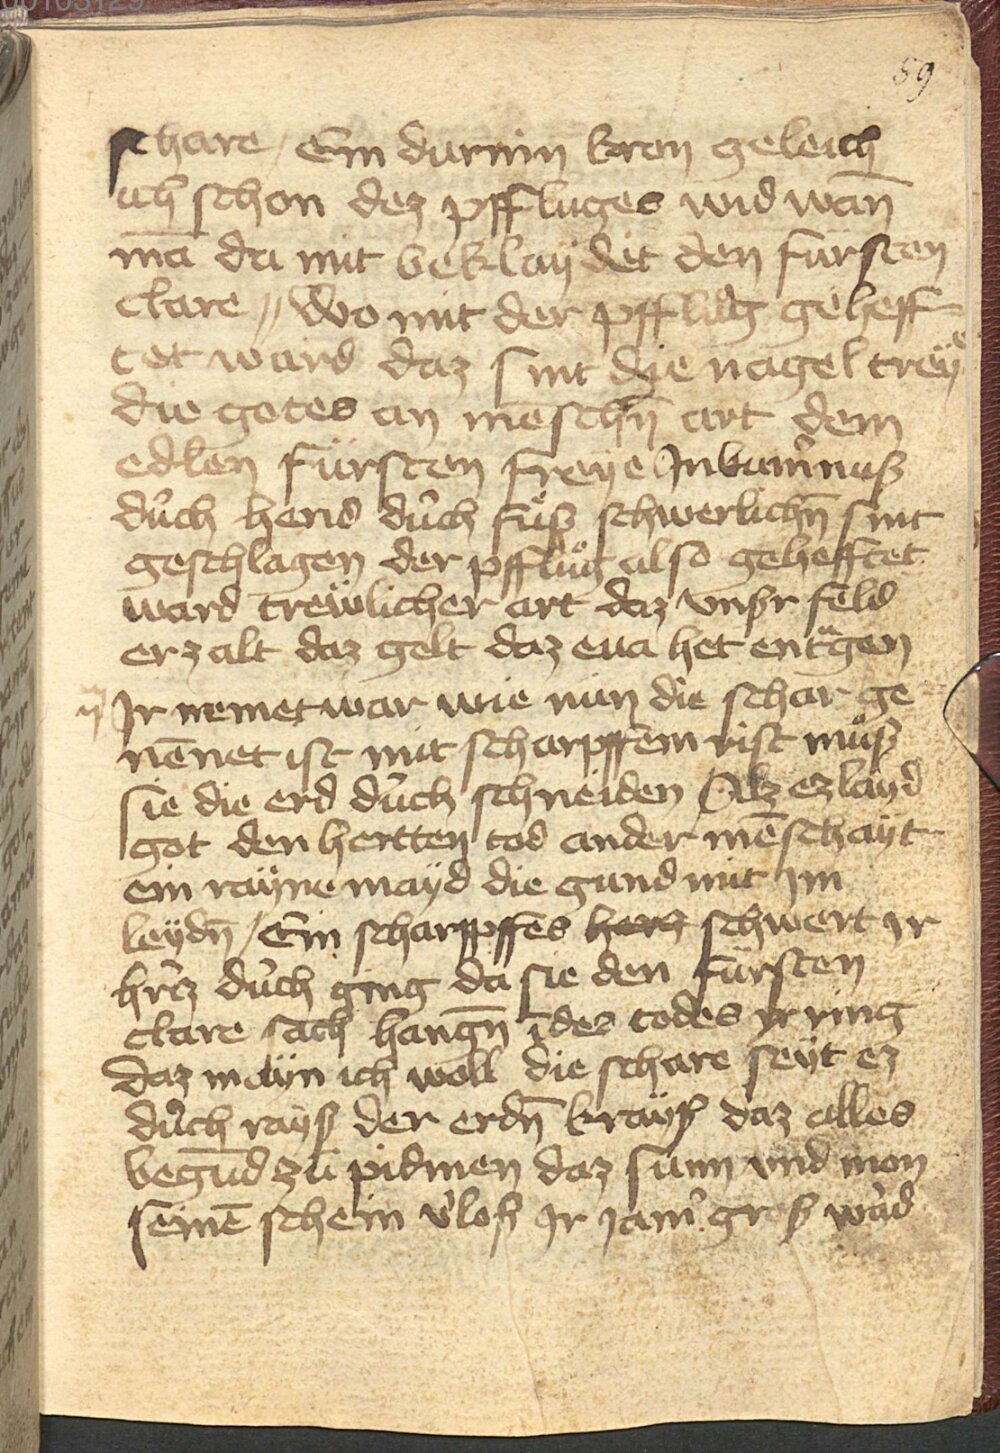 00105129
59
schare / Ein durnin kron geleich
ich schon dez pffluges wid wan̄
mā da mit beklaÿdet den fürsten
clare // Wo mit der pfflug geheff
tet ward daz sint die nagel treÿe
die gotes an mēschn̄ art dem
edlen fürsten freÿe Jn
du̓ch hend du̓ch fuͤß schwerlichn̄ sint
geschlagen der pffluͦg also gehefftet
ward trewlicher art daz vnßr feld
erzalt daz gelt daz eua het entgen
Jr nemet war wie nun die schar ge
nēnet ist mit scharpffem rist muͦß
sie die erd du̓ch schneiden Alz ez layd
got den hertten tod ander mēschayt
ein raÿne maÿd die gund mit Jm
leÿdn̄ / Ein scharppffes hertz schwert Jr
hr̓cz du̓ch ging da sie den fürsten
clare sach hangn̄ ī dez todes yrring
Daz maÿn ich woll die schare seÿt ez
du̓ch rayß der erdn̄ kraÿß daz alles
begūd zū pidmen daz sunn vnd mon
seinē schein v̓loß Jr Jam̓ groß wa̓d